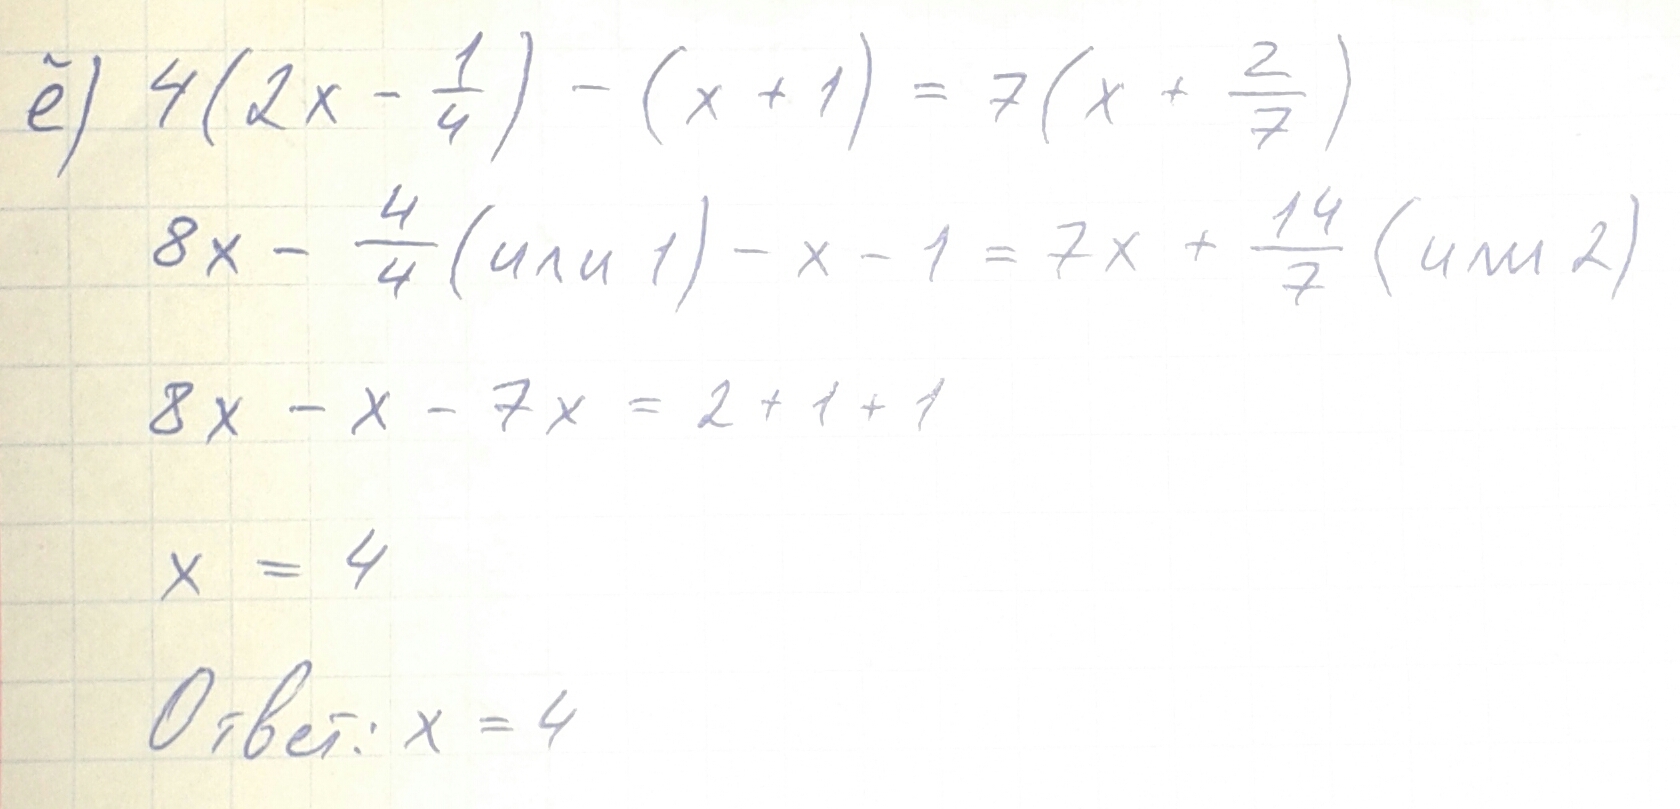 ё) 4(2x - 1/4) - (x + 1) = 7(x + 2/7)
8x - 4/4 (или 1) - x - 1 = 7x + 14/7 (или 2)
8x - x - 7x = 2 + 1 + 1
x = 4
Ответ: x = 4